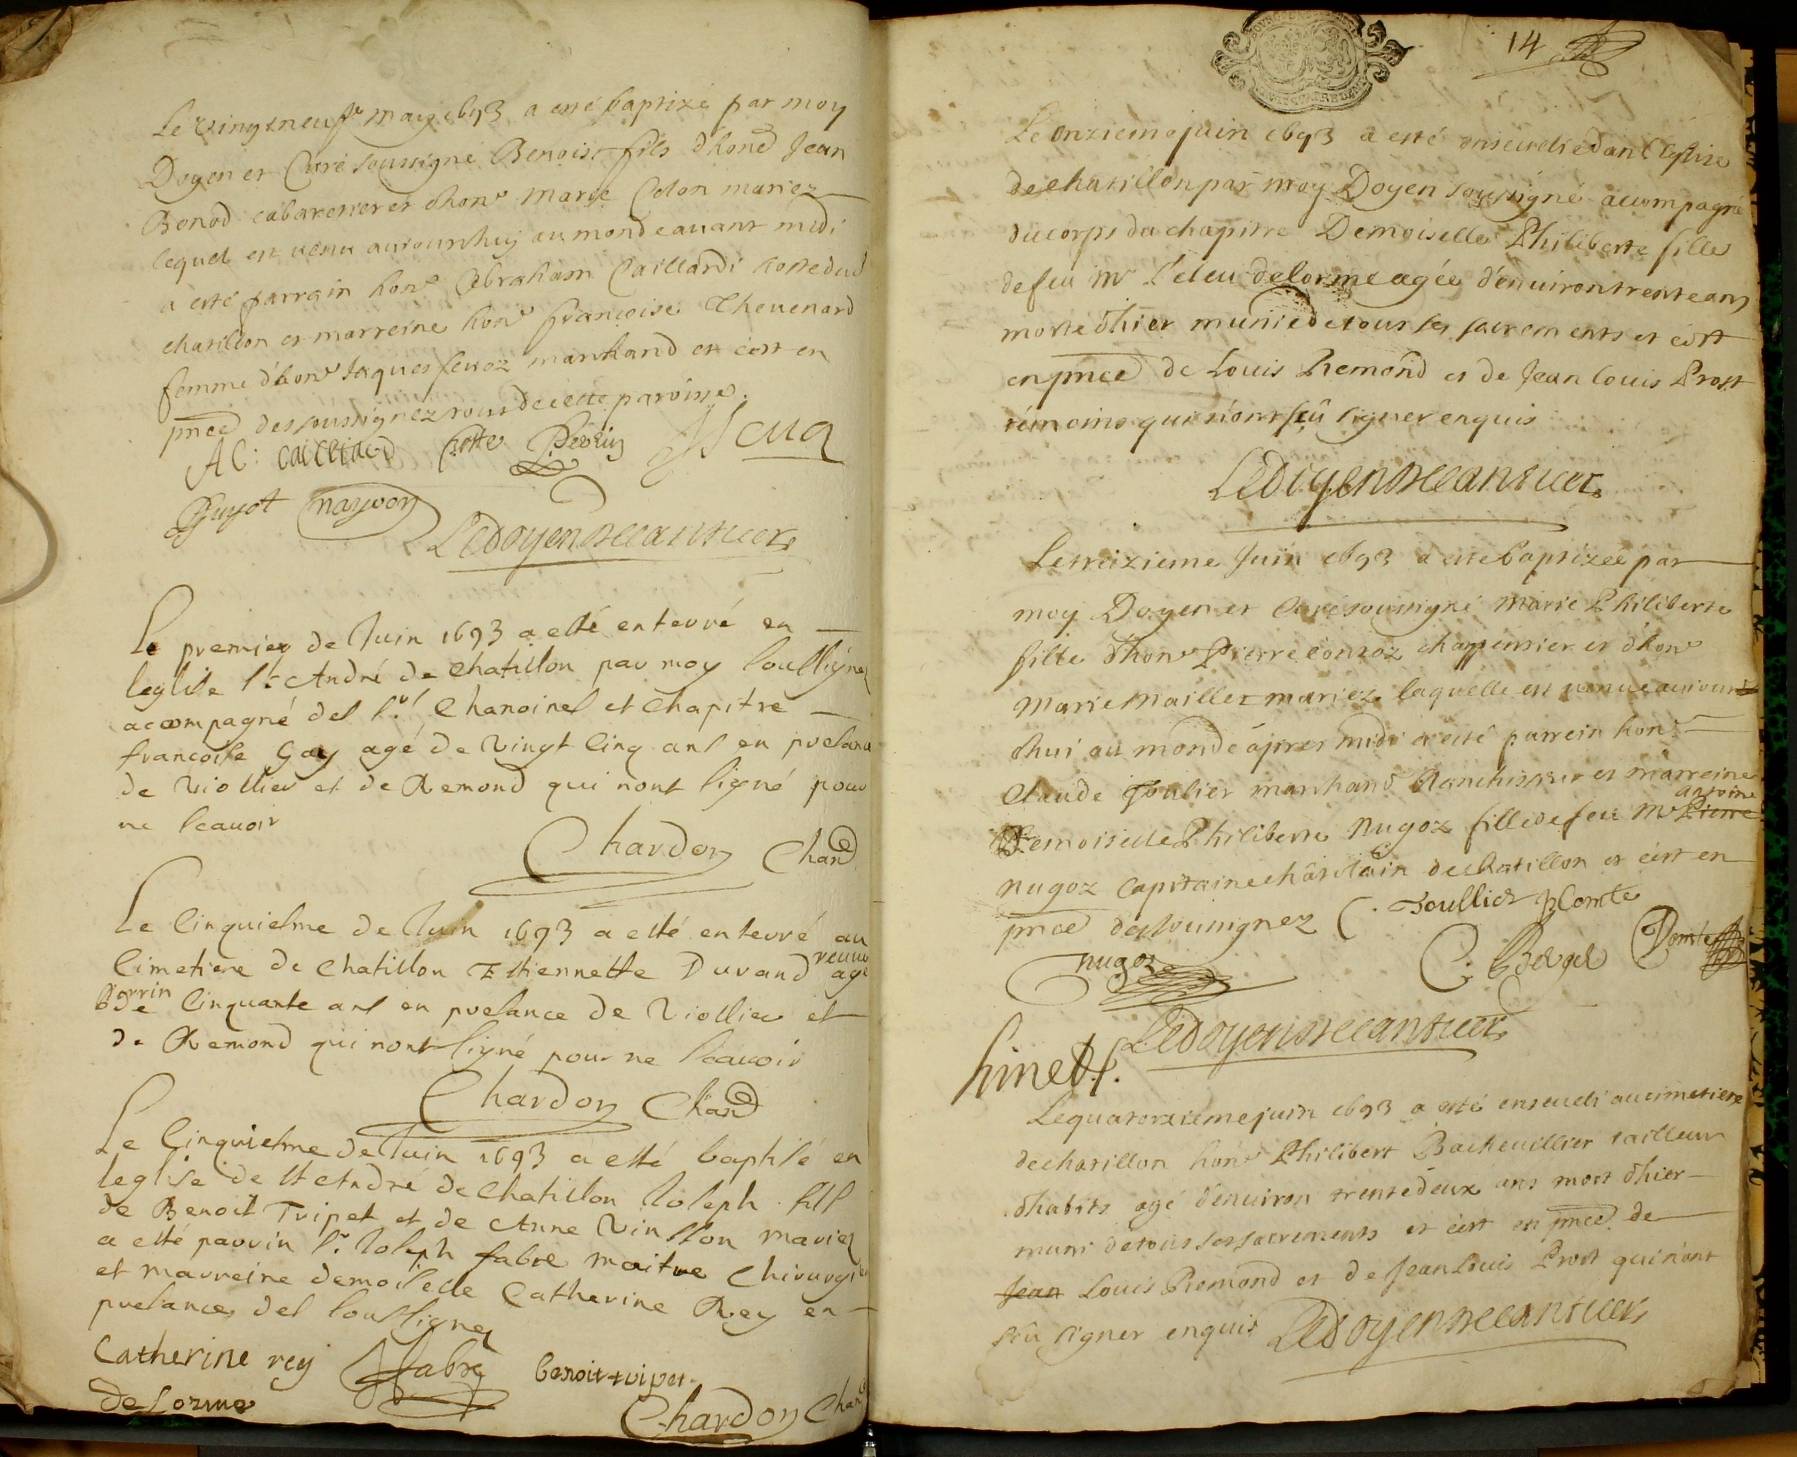 Le vingt neufe may 1693 a esté baptizé par moy
Doyen et Curé soussigné Benoist fils d'hone Jean
Bonod cabaretier et d'hone Marie Colon mariez
lequel est venu aujourdhuy au monde avant midi
a esté parrain hone Abraham Caillardi hoste dud
chatillon et marreine hone françoise Thevenard
femme d'hone Jaques marchand et c'est en
pnce des soussignez tous de cette paroisse.
AC: Cailliard Perrin
Guyot nayvon Le doyen
Le premier de Juin 1693 a esté enterré en
leglise st André de chatillon par moy soussigné
acompagné des srs Chanoines et Chapitre
francoise Gay agé de vingt cinq ans en presance
de viollier et de Remond qui nont signé pour
ne scavoir
Chardon Chane
Le cinquiesme de Juin 1693 a esté enterré au
cimetiere de chatillon Estiennette Durand veuve agé
Perrin de cinquante ans en presance de viollier et
de Remond qui nont signé pour ne scavoir
Chardon Chane
Le cinquiesme de Juin 1693 a esté baptisé en
leglise de st André de chatillon Joseph fils
de Benoit Tripet et de Anne vinsson mariez
a esté parrin sr Joseph fabre maitre chirurgien
et marreine demoiselle Catherine Rey en
presance des soussignez
Catherine rey Jfabre benoit tripet
de Lorme Chardon Chane
14
Le onzieme juin 1693 a esté enseveli edans l'eglise
de chatillon par moy Doyen soussigné accompagné
du corps du chapitre Demoiselle Philiberte fille
de feu Mr l'eleu delorme agée d'environ trente ans
morte d'hier munie de tous ses sacrements et c'est
en pnce de Louis Remond et de Jean Louis Prost
témoins qui n'ont sçû signer enquis
Le doyen
Le treizieme Juin 1693 a esté baptizée par
moy Doyen et Curé soussigné Marie Philiberte
fille d'hone Pierre conroz charpentier et d'hone
Marie Maillet mariez laquelle est venue aujour
d'hui au monde après midi a esté parrein hone
Claude Joulier marchand blanchisseur et marreine
Demoiselle Philiberte Nugoz fille de feu Mr Pierre antoine
nugoz capitaine châtelain de chatillon et c'est en
pnce des soussignez C. Joullier Comte
nugoz
Le doyen
Le quatorzieme juin 1693 a esté enseveli au cimetiere
de chatillon hone Philibert Bachevillier tailleur
d'habits agé d'environ trente deux ans mort d'hier
muni de tous ses sacrements et c'est en pnce de
Jean Louis Remond et de Jean Louis Prost qui n'ont
sçû signer enquis Le doyen